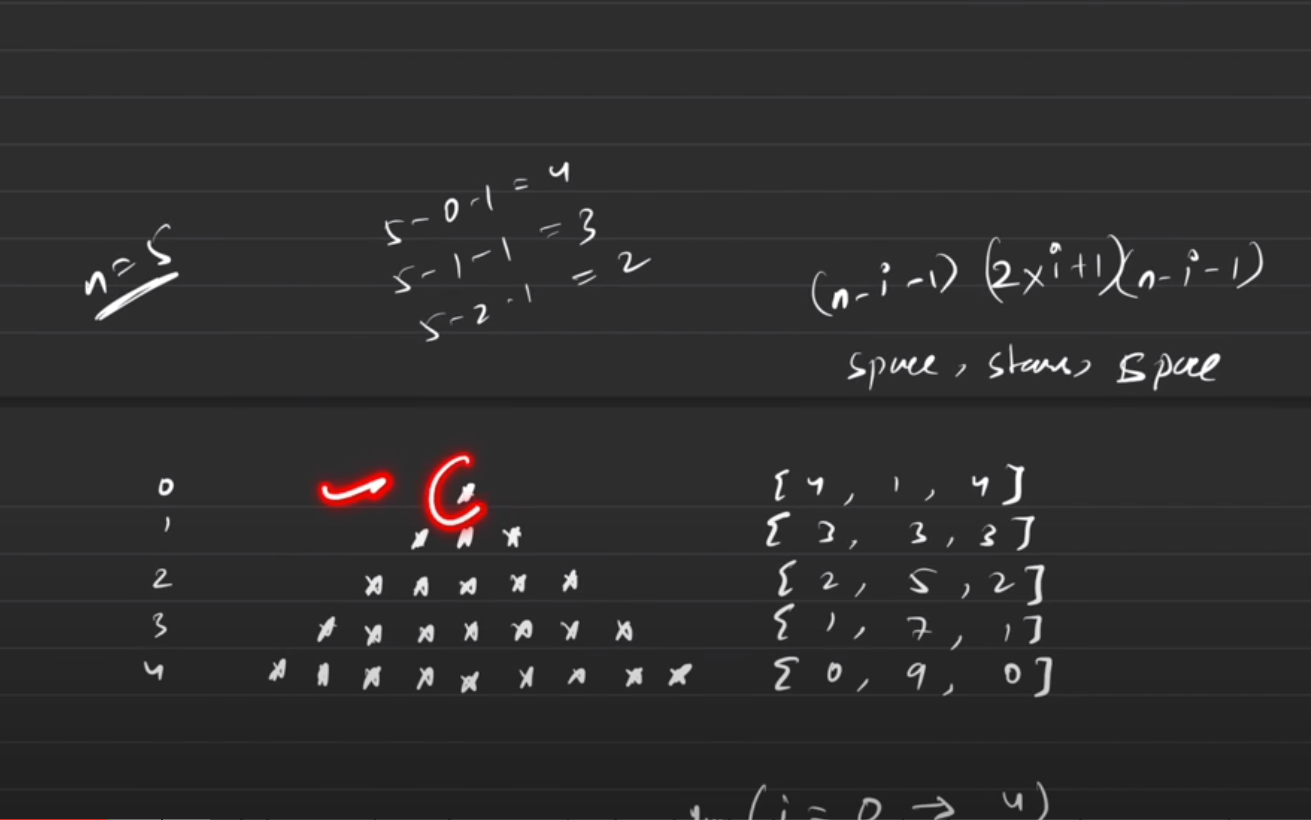 n=5
5-0-1=4
5-1-1=3
5-2-1=2
(n-i-1) (2×i+1)(n-i-1)
space, stars, space
0 * [4, 1, 4]
1 * * * [3, 3, 3]
2 * * * * * [2, 5, 2]
3 * * * * * * * [1, 7, 1]
4 * * * * * * * * * [0, 9, 0]
(i = 0 → 4)